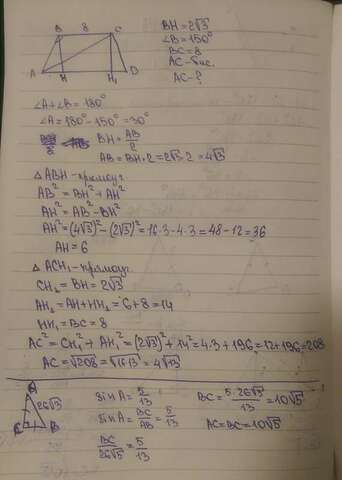 B 8 C
A H H₁ D
BH=2√3
∠B=150°
BC=8
AC-бис.
AC-?
∠A+∠B=180°
∠A=180°-150°=30°
BH=AB/2
AB=BH·2=2√3·2=4√3
△ABH-прямоуг.
AB²=BH²+AH²
AH²=AB²-BH²
AH²=(4√3)²-(2√3)²=16·3-4·3=48-12=36
AH=6
△ACH₁-прямоуг
CH₁=BH=2√3
AH₁=AH+HH₁=6+8=14
HH₁=BC=8
AC²=CH₁²+AH₁²=(2√3)²+14²=4·3+196=12+196=208
AC=√208=√16·13=4√13
A
26√3
C B
sinA=5/13
sinA=BC/AB=5/13
BC/26√5=5/13
BC=5·26√5/13=10√5
AC=BC=10√5